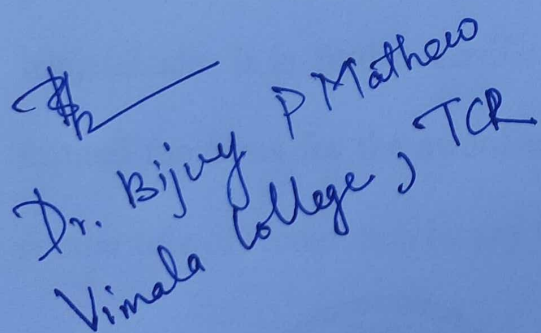 Dr. Bijuy P Mathew
Vimala College, TCR